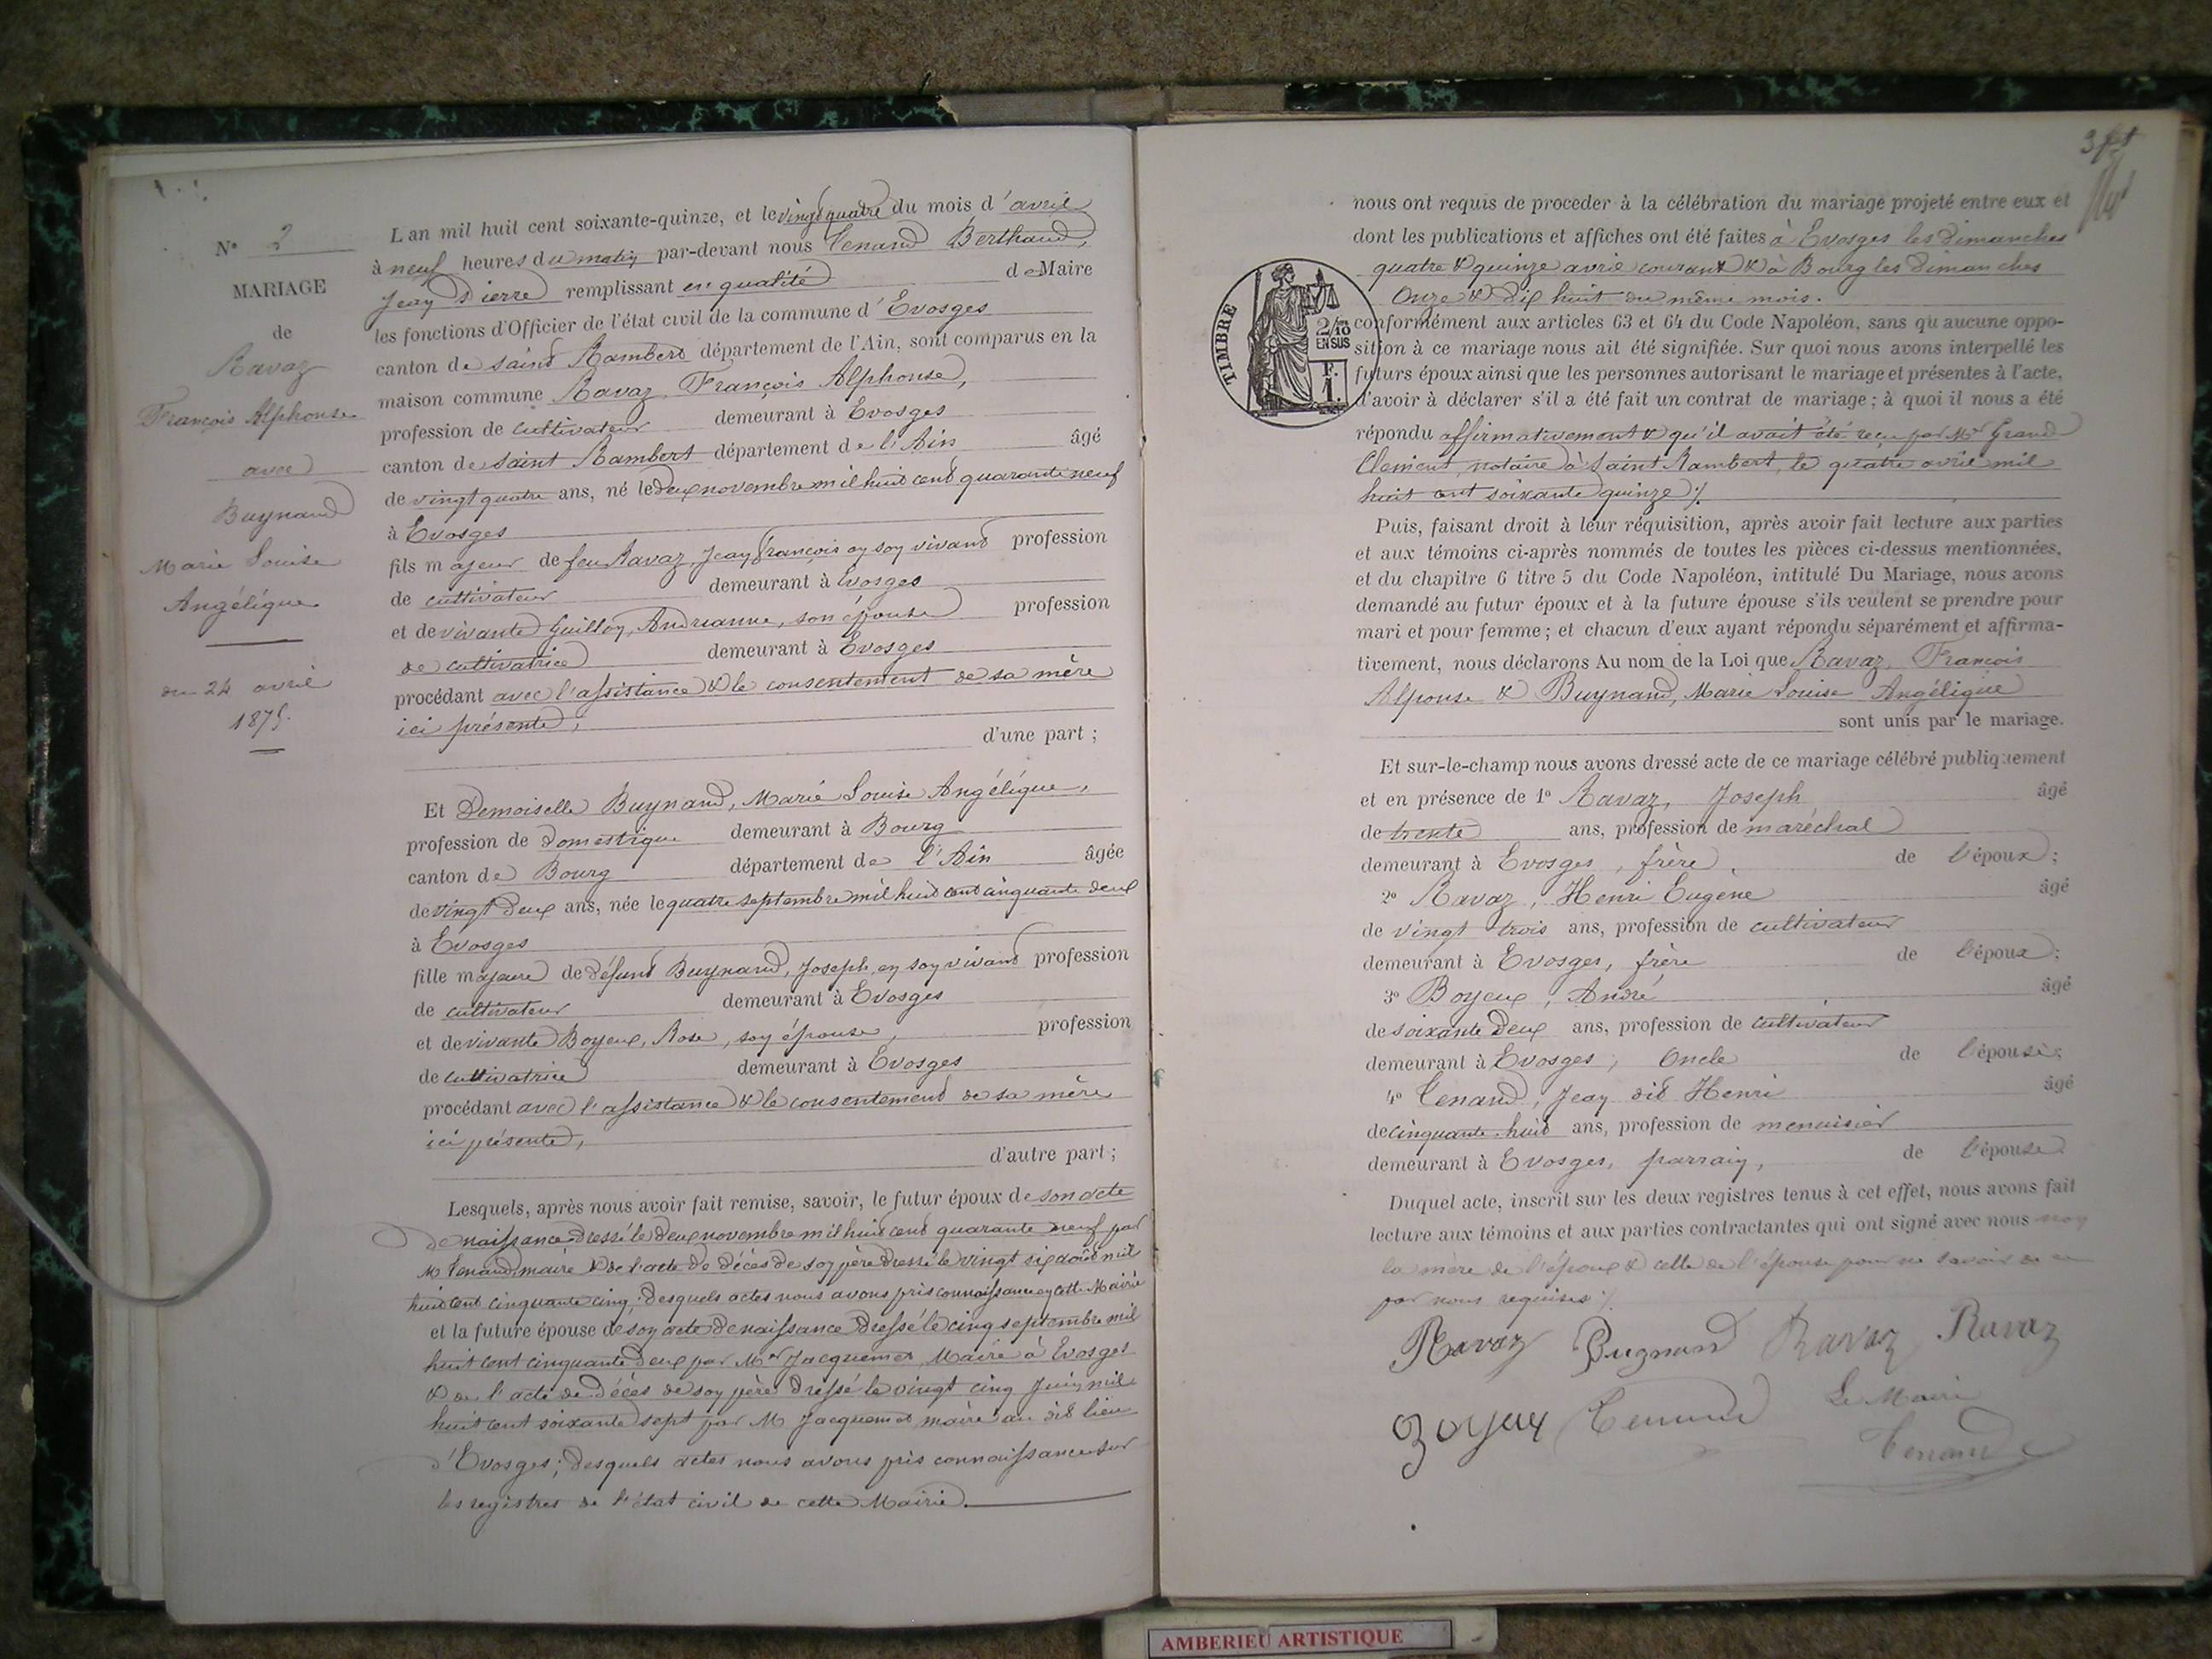 N° 2
MARIAGE
de
Ravaz
François Alphonse
avec
Buynand
Marie Louise
Angélique
du 24 avril
1875.
L an mil huit cent soixante-quinze, et le vingt quatre du mois d'avril
à neuf heures du matin par-devant nous Tenand Berthaud,
Jean Pierre remplissant en qualité de Maire
les fonctions d'Officier de l'état civil de la commune d'Evosges
canton de saint Rambert département de l'Ain, sont comparus en la
maison commune Ravaz, François Alphonse,
profession de cultivateur demeurant à Evosges
canton de saint Rambert département de l'Ain âgé
de vingt quatre ans, né le deux novembre mil huit cent quarante neuf
à Evosges
fils majeur de feu Ravaz, Jean François en son vivant profession
de cultivateur demeurant à Evosges
et de vivante Guillon, Andréanne, son épouse profession
de cultivatrice demeurant à Evosges
procédant avec l'assistance & le consentement de sa mère
ici présente,
d'une part ;
Et Demoiselle Buynand, Marie Louise Angélique,
profession de domestique demeurant à Bourg
canton de Bourg département de l'Ain âgée
de vingt deux ans, née le quatre septembre mil huit cent cinquante deux
à Evosges
fille majeure de défunt Buynand, Joseph, en son vivant profession
de cultivateur demeurant à Evosges
et de vivante Boyeux, Rose, son épouse, profession
de cultivatrice demeurant à Evosges
procédant avec l'assistance & le consentement de sa mère
ici présente,
d'autre part ;
Lesquels, après nous avoir fait remise, savoir, le futur époux de son acte
de naissance dressé le deux novembre mil huit cent quarante neuf par
M Tenand, maire & de l'acte de décès de son père dressé le vingt six août mil
huit cent cinquante cinq, desquels actes nous avons pris connaissance en cette Mairie
et la future épouse de son acte de naissance dressé le cinq septembre mil
huit cent cinquante deux par Mr Jacquemet, Maire à Evosges
& de l'acte de décès de son père dressé le vingt cinq Juin mil
huit cent soixante sept par M Jacquemet maire au dit lieu
d'Evosges ; desquels actes nous avons pris connaissance sur
les registres de l'état civil de cette Mairie.
nous ont requis de proceder à la célébration du mariage projeté entre eux et
dont les publications et affiches ont été faites à Evosges les dimanches
quatre & quinze avril courant & à Bourg les dimanches
Onze & dix huit du même mois.
TIMBRE
2/10 EN SUS
F. 1.
conformément aux articles 63 et 64 du Code Napoléon, sans qu'aucune oppo-
sition à ce mariage nous ait été signifiée. Sur quoi nous avons interpellé les
futurs époux ainsi que les personnes autorisant le mariage et présentes à l'acte,
d'avoir à déclarer s'il a été fait un contrat de mariage ; à quoi il nous a été
répondu affirmativement & qu'il avait été reçu par Mr Grand
Clément, notaire à Saint Rambert, le quatre avril mil
huit cent soixante quinze ./.
Puis, faisant droit à leur réquisition, après avoir fait lecture aux parties
et aux témoins ci-après nommés de toutes les pièces ci-dessus mentionnées,
et du chapitre 6 titre 5 du Code Napoléon, intitulé Du Mariage, nous avons
demandé au futur époux et à la future épouse s'ils veulent se prendre pour
mari et pour femme ; et chacun d'eux ayant répondu séparément et affirma-
tivement, nous déclarons Au nom de la Loi que Ravaz, François
Alponse & Buynand, Marie Louise Angélique
sont unis par le mariage.
Et sur-le-champ nous avons dressé acte de ce mariage célébré publiquement
et en présence de 1° Ravaz, Joseph âgé
de trente ans, profession de maréchal
demeurant à Evosges, frère de l'époux ;
2° Ravaz, Henri Eugène âgé
de vingt trois ans, profession de cultivateur
demeurant à Evosges, frère de l'époux ;
3° Boyeux, André âgé
de soixante deux ans, profession de cultivateur
demeurant à Evosges, Oncle de l'épouse ;
4° Tenand, Jean dit Henri âgé
de cinquante huit ans, profession de menuisier
demeurant à Evosges, parrain, de l'épouse.
Duquel acte, inscrit sur les deux registres tenus à cet effet, nous avons fait
lecture aux témoins et aux parties contractantes qui ont signé avec nous non
la mère de l'époux & celle de l'épouse pour ne savoir de ce
par nous requises ./.
Ravaz Buynand Ravaz Ravaz
Boyeux Tenand Le Maire
Tenand
AMBERIEU ARTISTIQUE